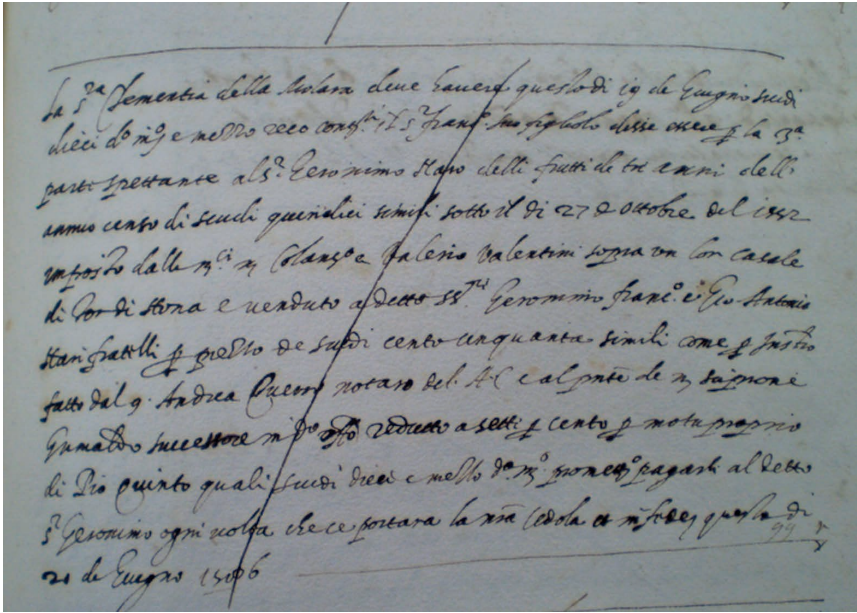 La S.ra Clementia della Molara deve havere questo di 19 de Giugno scudi
dieci d. m.ta e mezzo reco cont.ti il S.r franc.o suo figliolo disse essere p la 3.a
parte spettante al S.r Geronimo Staro delli frutti de tre anni dell
annuo censo di scudi quindici simili sotto il di 27 de ottobre del 1552
imposto dalli m.ci m Colanzo e Valerio Valentini sopra un lor casale
di Tor di stona e venduto a detto SS.ri Geronimo franc.o e Gio. Antonio
Stari fratelli p prezzo de scudi cento cinquanta simili come p Instro
fatto dal q. Andrea notaro del A C e al pnte de m Scipione
Grimaldo successore redutto a setti p cento p motu proprio
di Pio Quinto quali scudi dieci e mezzo d. m.ta prometto pagarli al detto
S.r Geronimo ogni volta che ce portara la nra cedola et in fede questo di
21 de Giugno